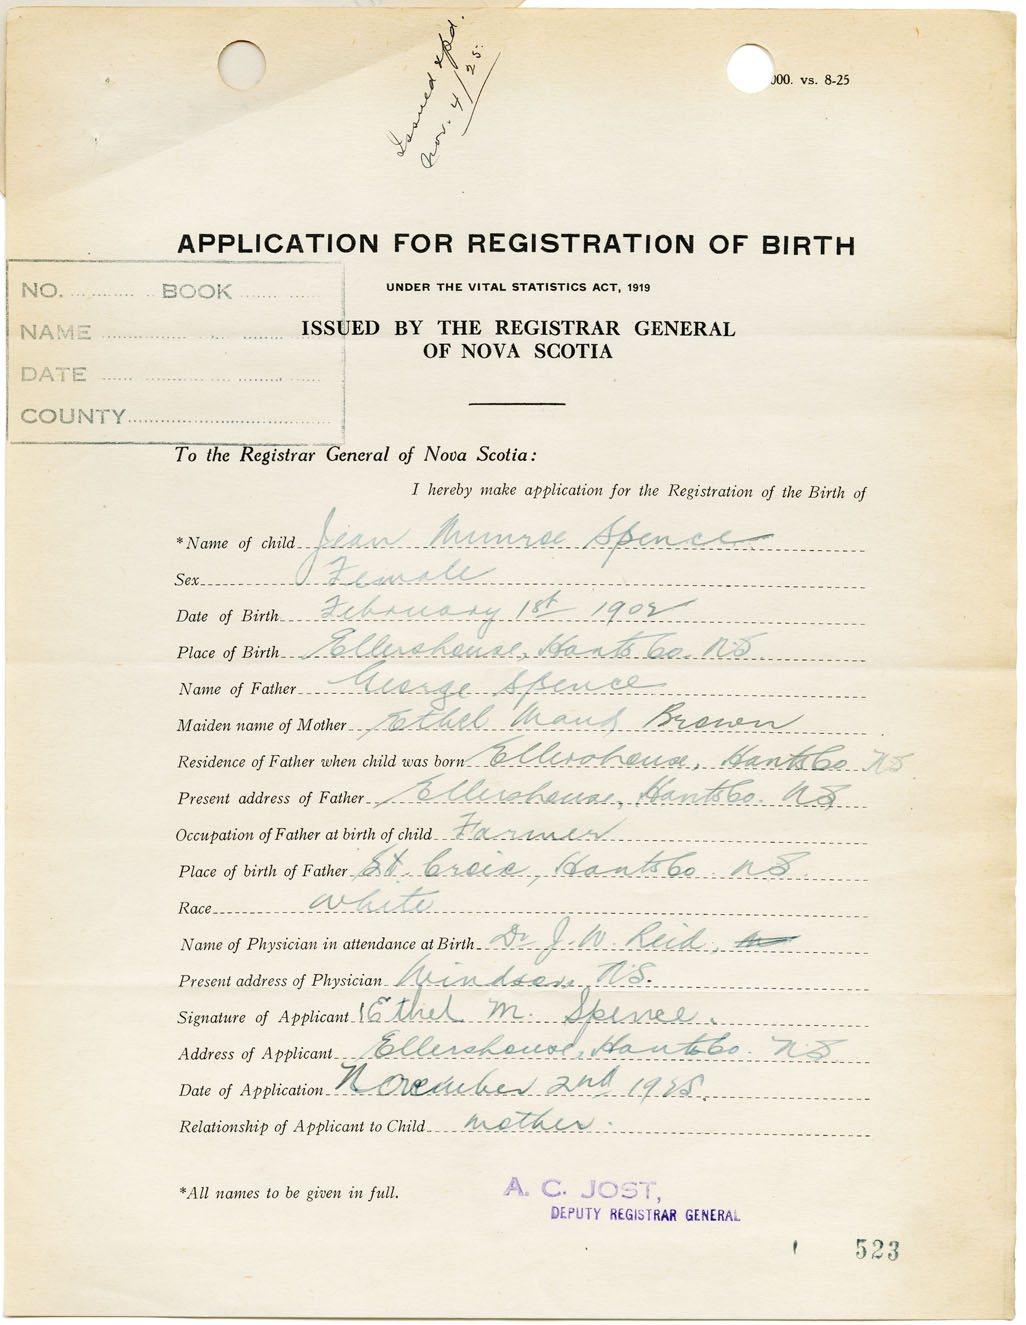 Issued & pd.
Nov. 4/25.
000. vs. 8-25
APPLICATION FOR REGISTRATION OF BIRTH
UNDER THE VITAL STATISTICS ACT, 1919
ISSUED BY THE REGISTRAR GENERAL
OF NOVA SCOTIA
NO. BOOK
NAME
DATE
COUNTY
To the Registrar General of Nova Scotia:
I hereby make application for the Registration of the Birth of
*Name of child Jean Munroe Spence
Sex Female
Date of Birth February 1st 1902
Place of Birth Ellershouse, Hants Co. N.S.
Name of Father George Spence
Maiden name of Mother Ethel Maud Brown
Residence of Father when child was born Ellershouse, Hants Co N S
Present address of Father Ellershouse, Hants Co. N S
Occupation of Father at birth of child Farmer
Place of birth of Father St. Croix, Hants Co. N.S.
Race White
Name of Physician in attendance at Birth Dr J. W. Reid,
Present address of Physician Windsor, N.S.
Signature of Applicant Ethel M. Spence.
Address of Applicant Ellershouse, Hants Co. N.S.
Date of Application November 2nd 1925.
Relationship of Applicant to Child mother.
*All names to be given in full.
A. C. JOST,
DEPUTY REGISTRAR GENERAL
523